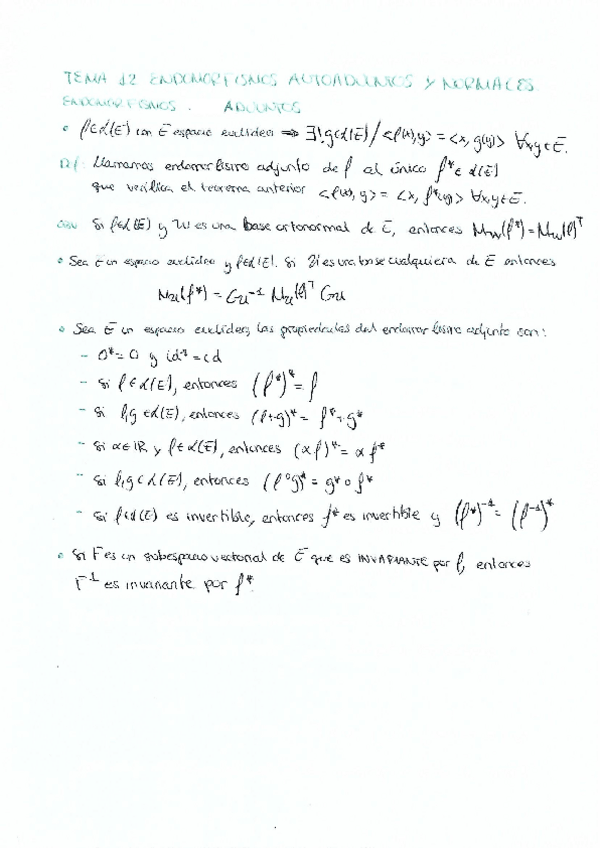 TEMA 12 ENDOMORFISMOS AUTOADJUNTOS Y NORMALES.
ENDOMORFISMOS. ADJUNTOS
• f∈L(E) con E espacio euclídeo ⇒ ∃!g∈L(E) / <f(x),y> = <x, g(y)> ∀x,y∈E.
Df: Llamamos endomorfismo adjunto de f al único f*∈L(E)
que verifica el teorema anterior <f(x),y> = <x, f*(y)> ∀x,y∈E.
Si f∈L(E) y U es una base ortonormal de E, entonces Mu(f*) = Mu(f)ᵀ
• Sea E un espacio euclídeo y f∈L(E). Si U es una base cualquiera de E entonces
Mu(f*) = Gu⁻¹ Mu(f)ᵀ Gu
• Sea E un espacio euclídeo, las propiedades del endomorfismo adjunto son:
- O* = O y id* = id
- Si f∈L(E), entonces (f*)* = f
- Si f,g∈L(E), entonces (f+g)* = f* + g*
- Si α∈ℝ y f∈L(E), entonces (αf)* = αf*
- Si f,g∈L(E), entonces (f∘g)* = g*∘f*
- Si f∈L(E) es invertible, entonces f* es invertible y (f*)⁻¹ = (f⁻¹)*
• Si F es un subespacio vectorial de E que es INVARIANTE por f, entonces
F⊥ es invariante por f*.